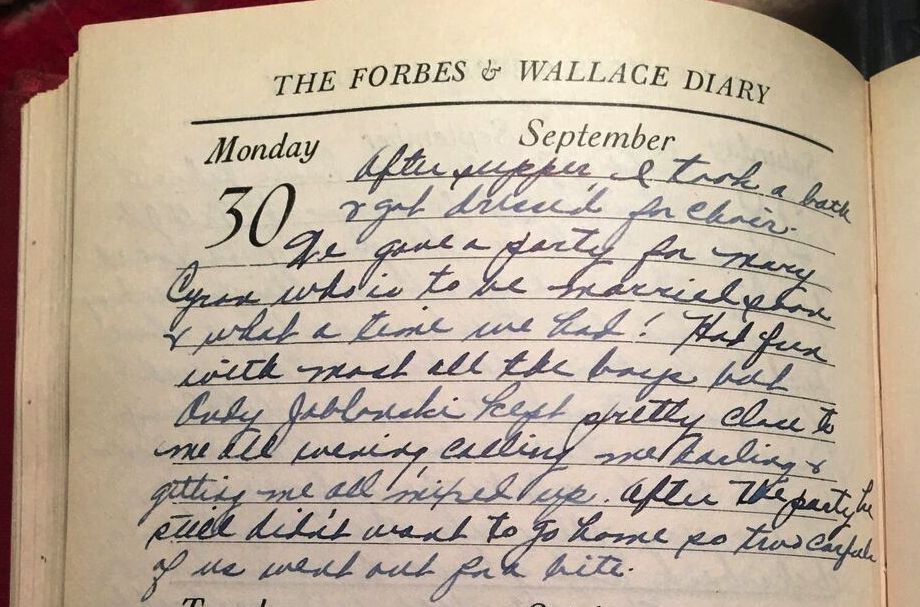 THE FORBES & WALLACE DIARY
Monday September
30 After supper I took a bath
& got dressed for choir.
We gave a party for Mary
Cyran who is to be married soon
& what a time we had! Had fun
with most all the boys but
Andy Jablonski kept pretty close to
me all evening calling me darling &
getting me all mixed up. After the party he
still didn't want to go home so two carfuls
of us went out for a bite.